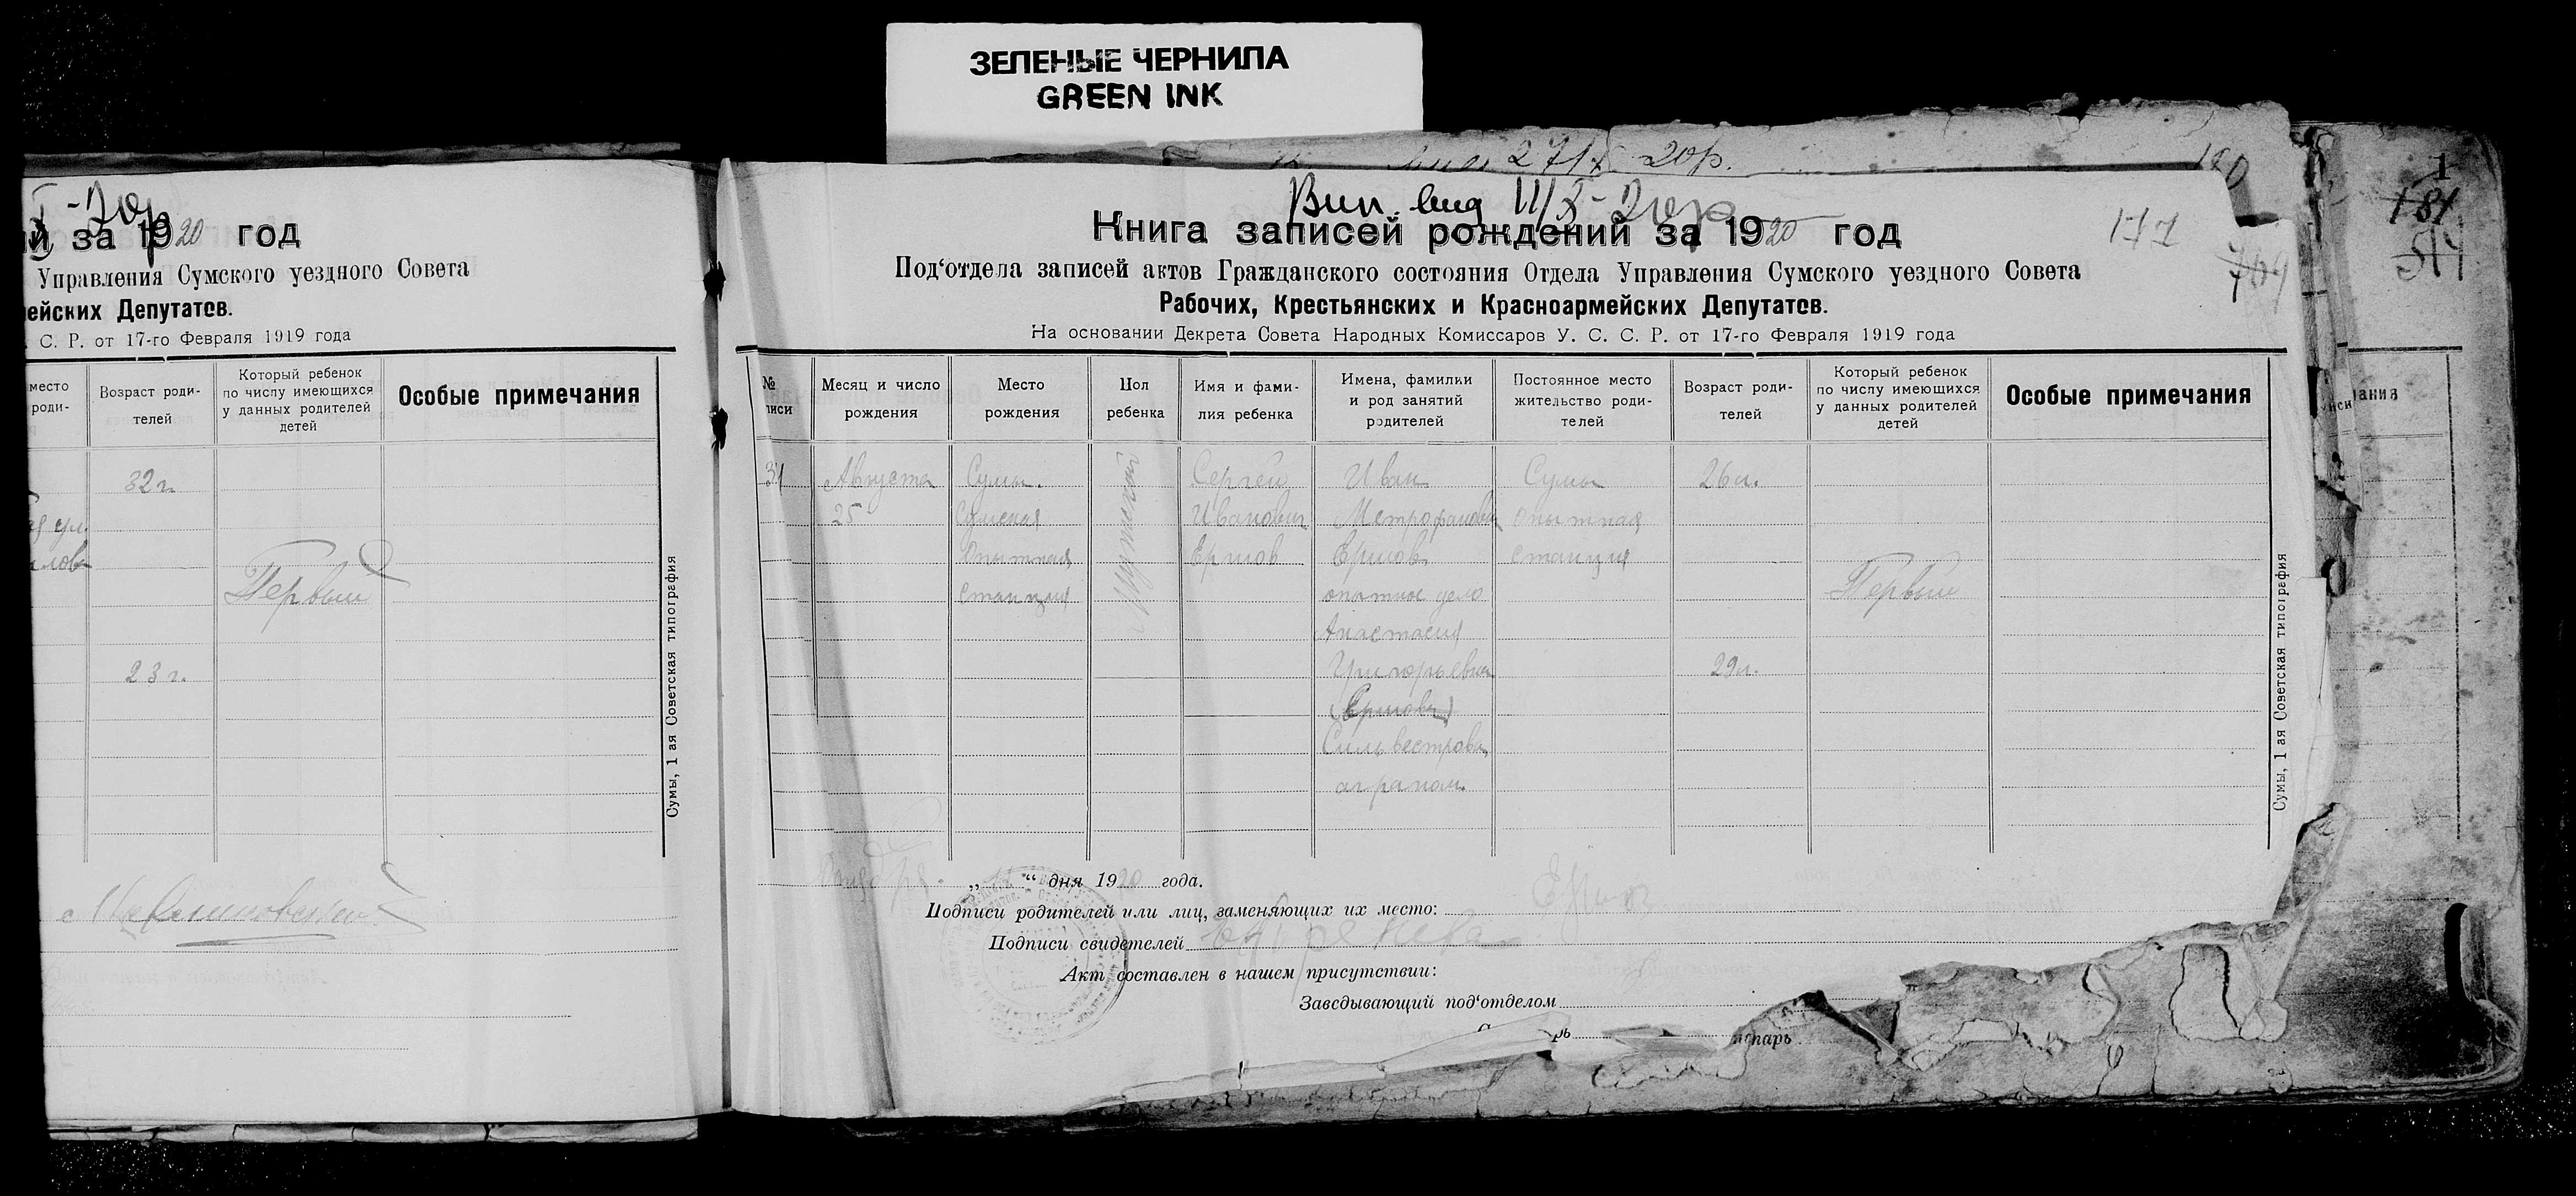 ЗЕЛЕНЫЕ ЧЕРНИЛА
GREEN INK
20р.
за 1920 год
Управления Сумского уездного Совета
ейских Депутатов.
С. Р. от 17-го Февраля 1919 года
место
роди-
Возраст роди-
телей
Который ребенок
по числу имеющихся
у данных родителей
детей
Особые примечания
32 г.
ул.
Первый
23 г.
Сумы, 1 ая Советская типография
Вип. вид
Книга записей рождений за 1920 год
Под‘отдела записей актов Гражданского состояния Отдела Управления Сумского уездного Совета
Рабочих, Крестьянских и Красноармейских Депутатов.
На основании Декрета Совета Народных Комиссаров У. С. С. Р. от 17-го Февраля 1919 года
181
№
писи
Месяц и число
рождения
Место
рождения
Пол
ребенка
Имя и фами-
лия ребенка
Имена, фамилки
и род занятий
родителей
Постоянное место
жительство роди-
телей
Возраст роди-
телей
Который ребенок
по числу имеющихся
у данных родителей
детей
Особые примечания
Августа
25
Сумы.
Сумская
Опытная
Станция
Мужской
Сергей
Иванович
Ершов
Иван
Митрофанович
Ершов
опытное дело
Анастасия
Григорьевна
(Ершова)
Сильвестрова
агроном.
Сумы
Опытная
станция
26 л.
29 л.
Первый
Сумы, 1 ая Советская типография
дня 1920 года.
Подписи родителей или лиц, заменяющих их место: Ершов
Подписи свидетелей
Акт составлен в нашем присутствии:
Заведывающий под‘отделом